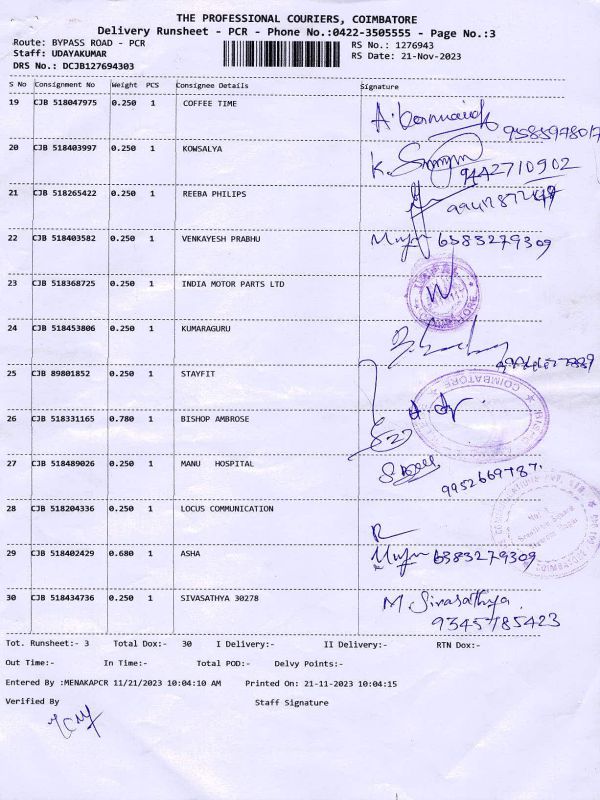 THE PROFESSIONAL COURIERS, COIMBATORE
Delivery Runsheet - PCR - Phone No.:0422-3505555 - Page No.:3
Route: BYPASS ROAD - PCR
RS No.: 1276943
Staff: UDAYAKUMAR
RS Date: 21-Nov-2023
DRS No.: DCJB127694303
S No Consignment No Weight PCS Consignee Details Signature
19 CJB 518047975 0.250 1 COFFEE TIME
20 CJB 518403997 0.250 1 KOWSALYA
9442710902
21 CJB 518265422 0.250 1 REEBA PHILIPS
22 CJB 518403582 0.250 1 VENKAYESH PRABHU 6383279309
23 CJB 518368725 0.250 1 INDIA MOTOR PARTS LTD
24 CJB 518453806 0.250 1 KUMARAGURU
25 CJB 89801852 0.250 1 STAYFIT
COIMBATORE
26 CJB 518331165 0.780 1 BISHOP AMBROSE
27 CJB 518489026 0.250 1 MANU HOSPITAL
9952669787.
28 CJB 518204336 0.250 1 LOCUS COMMUNICATION
29 CJB 518402429 0.680 1 ASHA 6383279309
30 CJB 518434736 0.250 1 SIVASATHYA 30278 M. Sivasathya.
9345785423
Tot. Runsheet:- 3 Total Dox:- 30 I Delivery:- II Delivery:- RTN Dox:-
Out Time:- In Time:- Total POD:- Delvy Points:-
Entered By :MENAKAPCR 11/21/2023 10:04:10 AM Printed On: 21-11-2023 10:04:15
Verified By Staff Signature